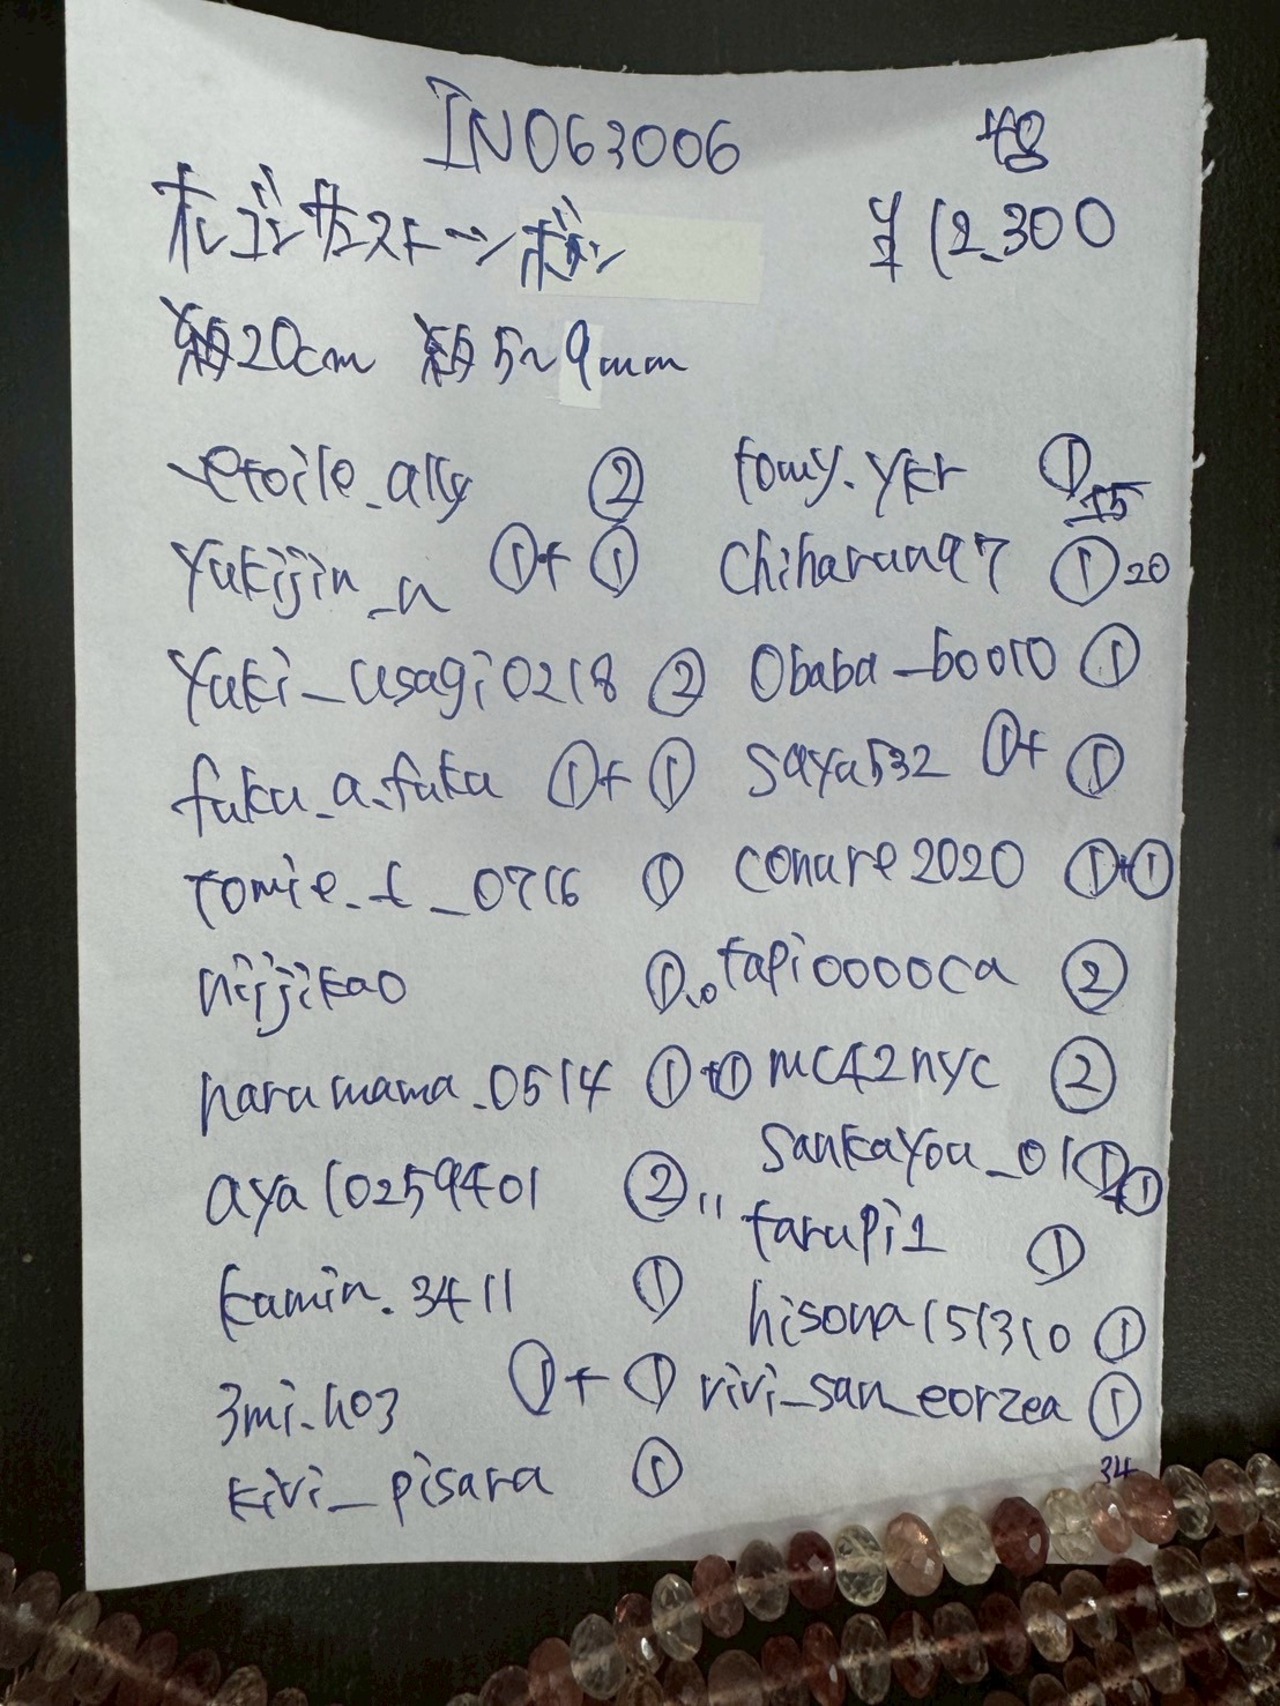 IN063006
48
オレゴンサンストーンボタン
¥12.300
約20cm 約5~9mm
etoile_ally ②
yukijin_n ①+①
yuki_usagi0218 ②
fuku_a.fuku ①+①
tomie.t_0716 ①
nijjikao ①
harumama.0514 ①+①
aya10259401 ②
kamin.3411 ①
3mi.h03 ①+①
kivi_pisara ①
tomy.ykr ① 15
chiharun97 ① 20
Obaba_boo10 ①
saya532 ①+①
conure2020 ①+①
tapiooooca ②
mc42nyc ②
sankayou_01 ①+①
tarupi1 ①
hisona151310 ①
vivi_san_eorzea ①
34